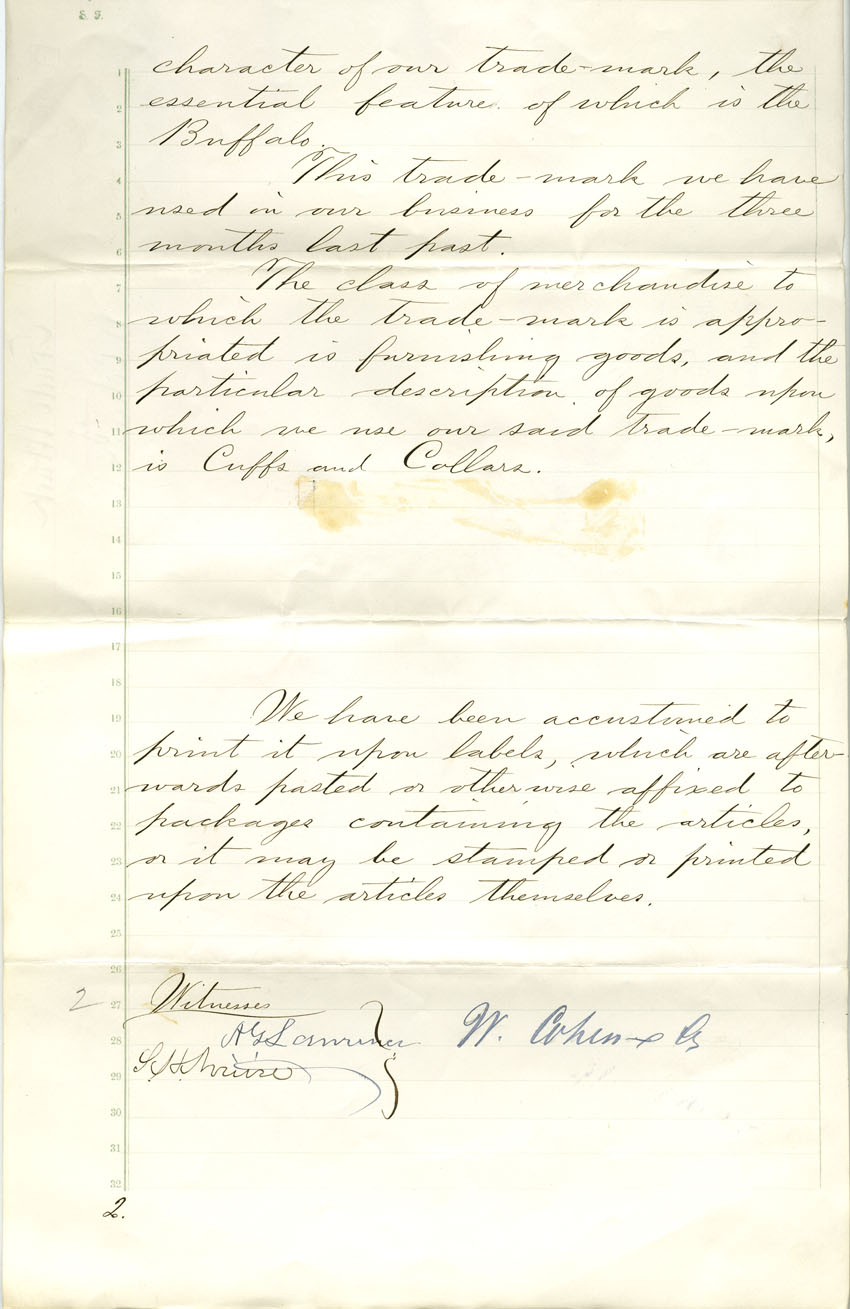 S. F.
1 character of our trade-mark, the
2 essential feature of which is the
3 Buffalo.
4 This trade-mark we have
5 used in our business for the three
6 months last past.
7 The class of merchandise to
8 which the trade-mark is appro-
9 priated is furnishing goods, and the
10 particular description of goods upon
11 which we use our said trade-mark,
12 is Cuffs and Collars.
13
14
15
16
17
18
19 We have been accustomed to
20 print it upon labels, which are after-
21 wards pasted or otherwise affixed to
22 packages containing the articles,
23 or it may be stamped or printed
24 upon the articles themselves.
25
26
2 27 Witnesses
28 W. Cohen & Co
29
30
31
32
2.